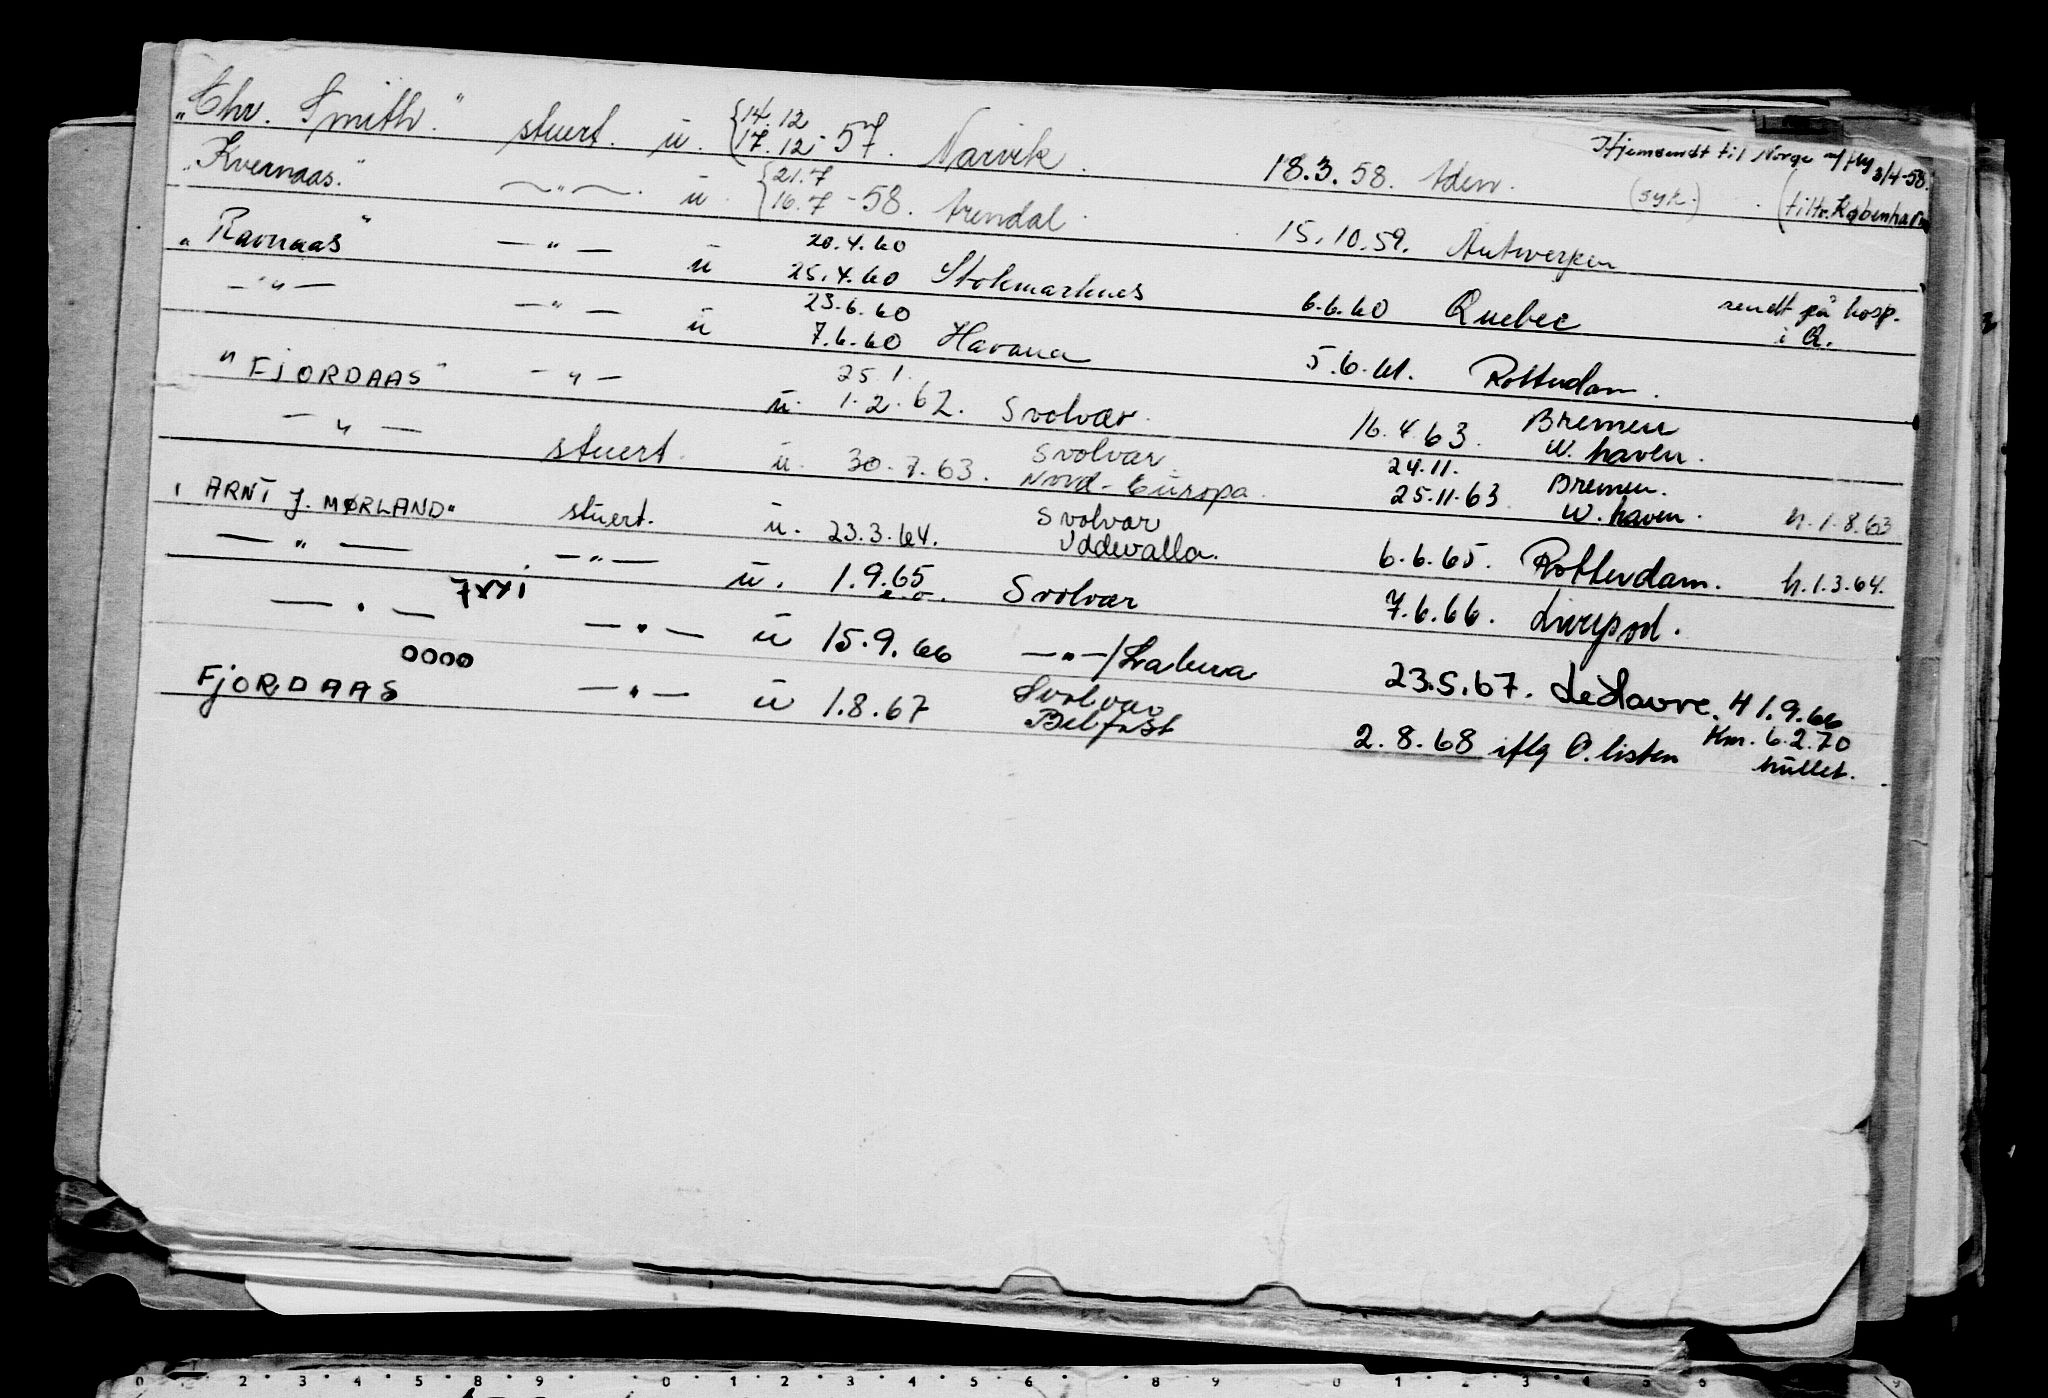 "Chr. Smith." stuert. ü. {14.12 17.12-57. Narvik. 18.3.58. Aden. Hjemsendt til Norge m/fly 3/4-58. (syk.) (tiltr. København
"Kvernaas." —"— ü. {21.7 16.7-58. Arendal. 15.10.59. Antwerpen
"Ravnaas" —"— ü 20.4.60 25.4.60 Stokmarknes 6.6.60 Quebec sendt på hosp. i Q.
—"— —"— ü 23.6.60 7.6.60 Havana 5.6.61. Rotterdam.
"FJORDAAS" —"— ü. 25.1. 1.2.62. Svolvær. 16.4.63. Bremen W. haven.
—"— stuert. ü. 30.7.63. Svolvær Nord-Europa. 24.11. 25.11.63 Bremen. W. haven. h. 1.8.63
"ARNT J. MØRLAND" stuert. ü. 23.3.64. Svolvær Uddevalla. 6.6.65. Rotterdam. h. 1.3.64.
—"— —"— ü. 1.9.65 Svolvær 7.6.66. Liverpool.
—"— —"— ü 15.9.66 —"—/ 23.5.67. Le Havre. H 1.9.66
FJORDAAS —"— ü 1.8.67 Svolvær Belfast 2.8.68 iflg O. listen Km. 6.2.70 hullet.